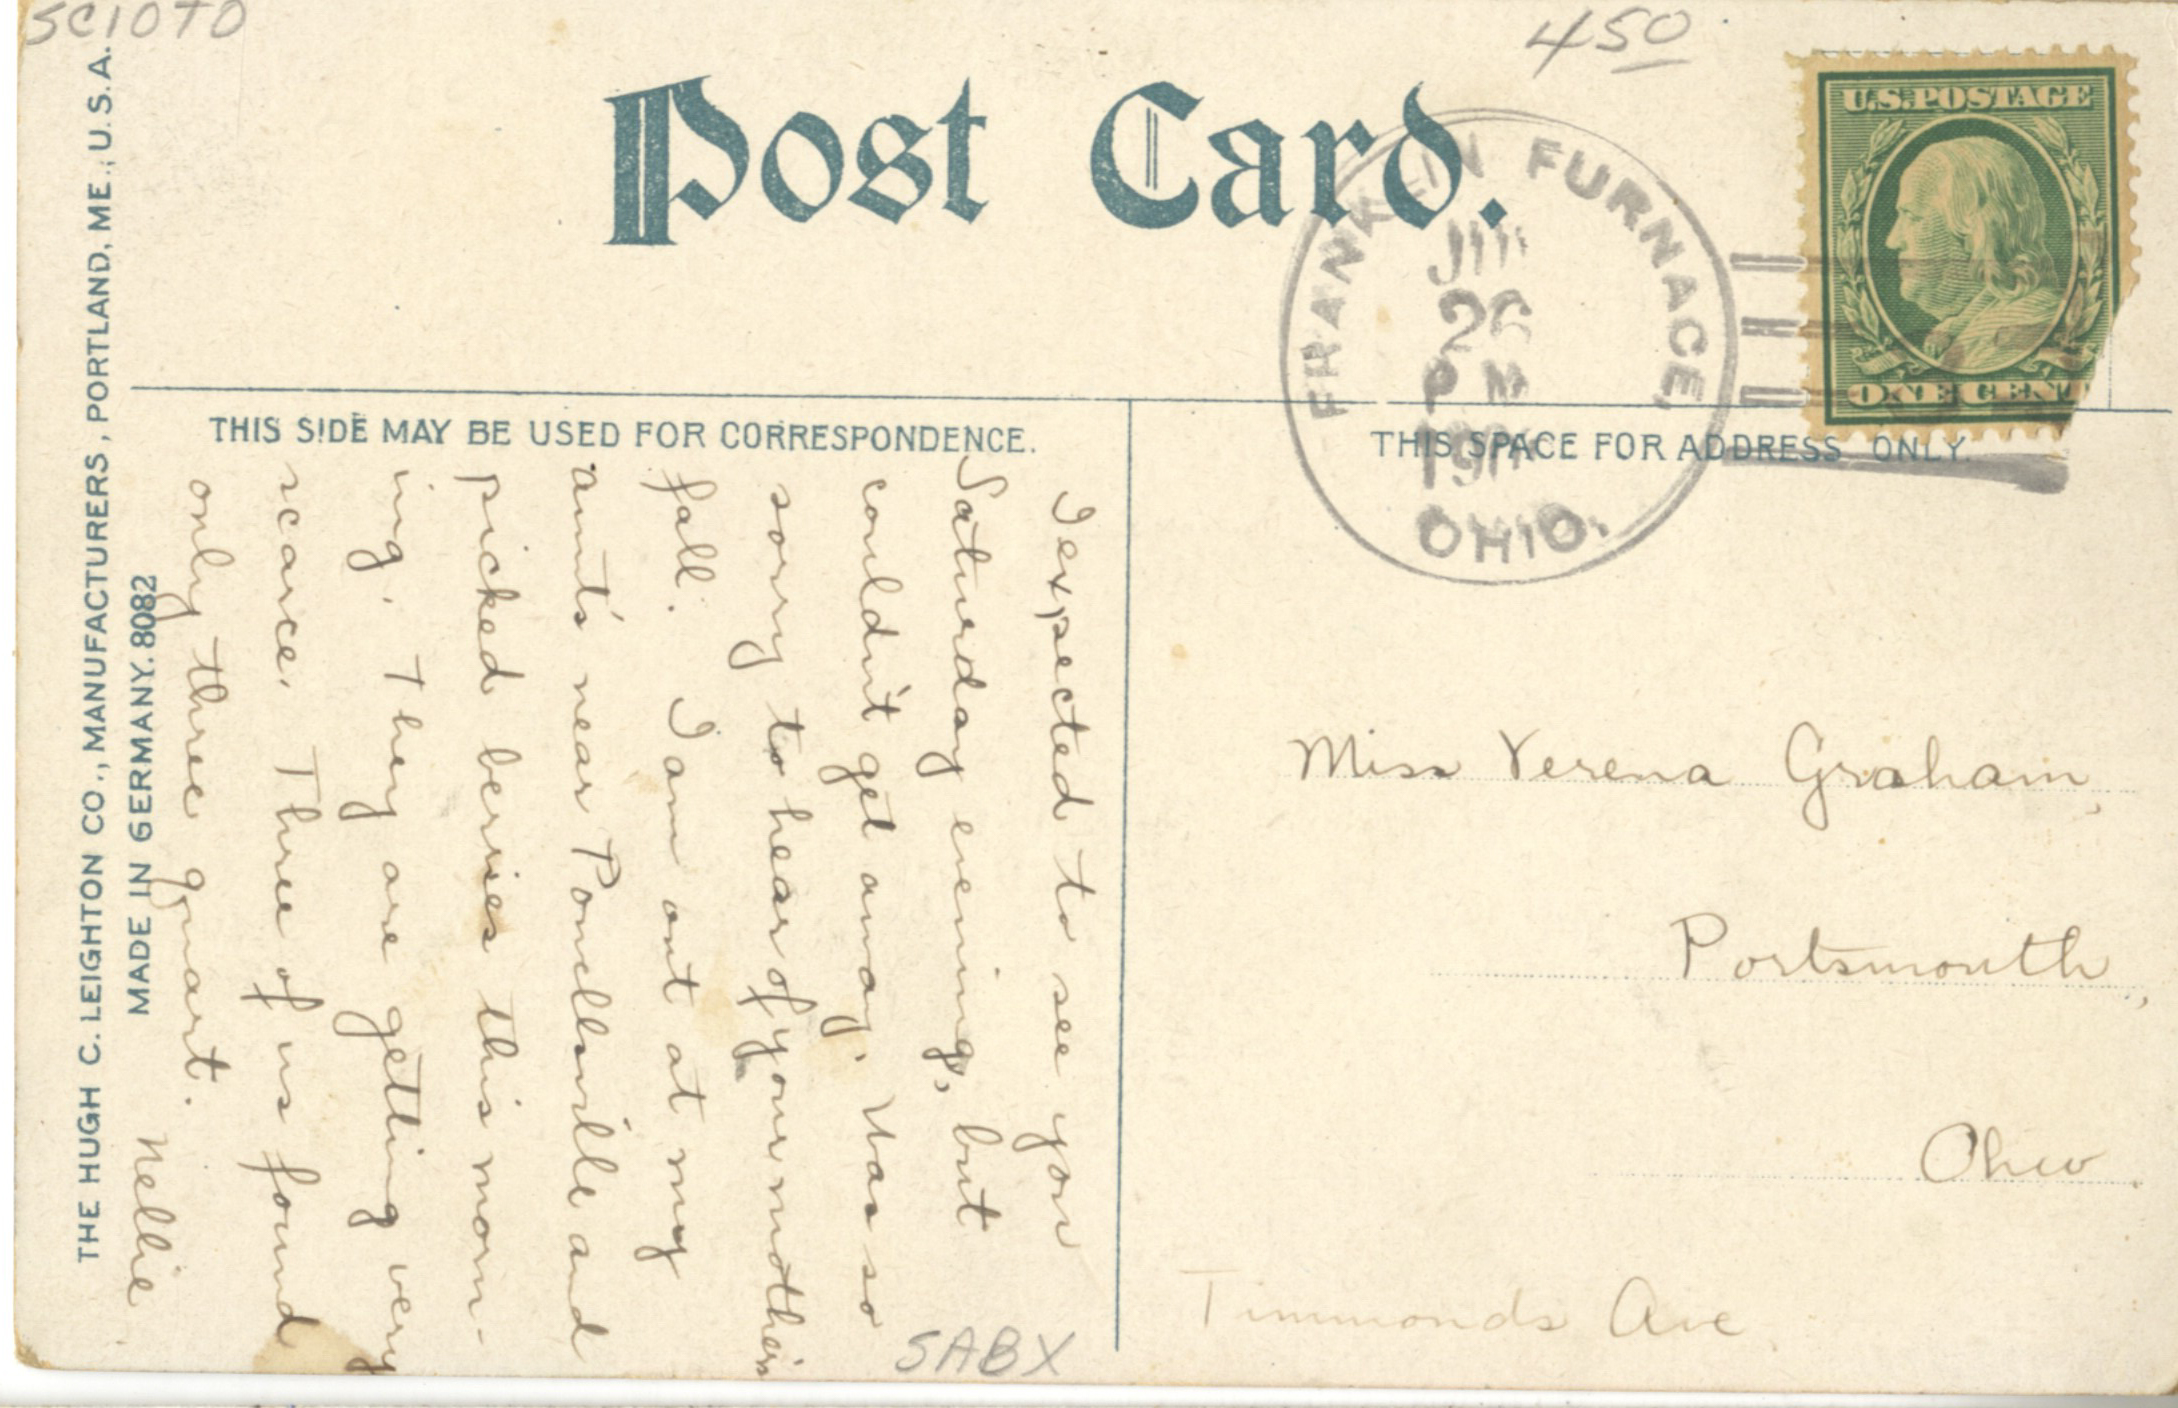 SCIOTO
450
Post Card.
U.S. POSTAGE
ONE CENT
FRANKLIN FURNACE,
26
PM
OHIO.
THIS SIDE MAY BE USED FOR CORRESPONDENCE.
THIS SPACE FOR ADDRESS ONLY.
THE HUGH C. LEIGHTON CO., MANUFACTURERS, PORTLAND, ME., U.S.A.
MADE IN GERMANY. 8082
I expected to see you
Saturday evening, but
couldn't get away. Was so
sorry to hear of your mother's
fall. I am out at my
aunt's near Powellsville and
picked berries this morn-
ing. They are getting very
scarce. Three of us found
only three quart.
Nellie
Miss Verena Graham,
Portsmouth,
Ohio.
Timmonds Ave
SABX